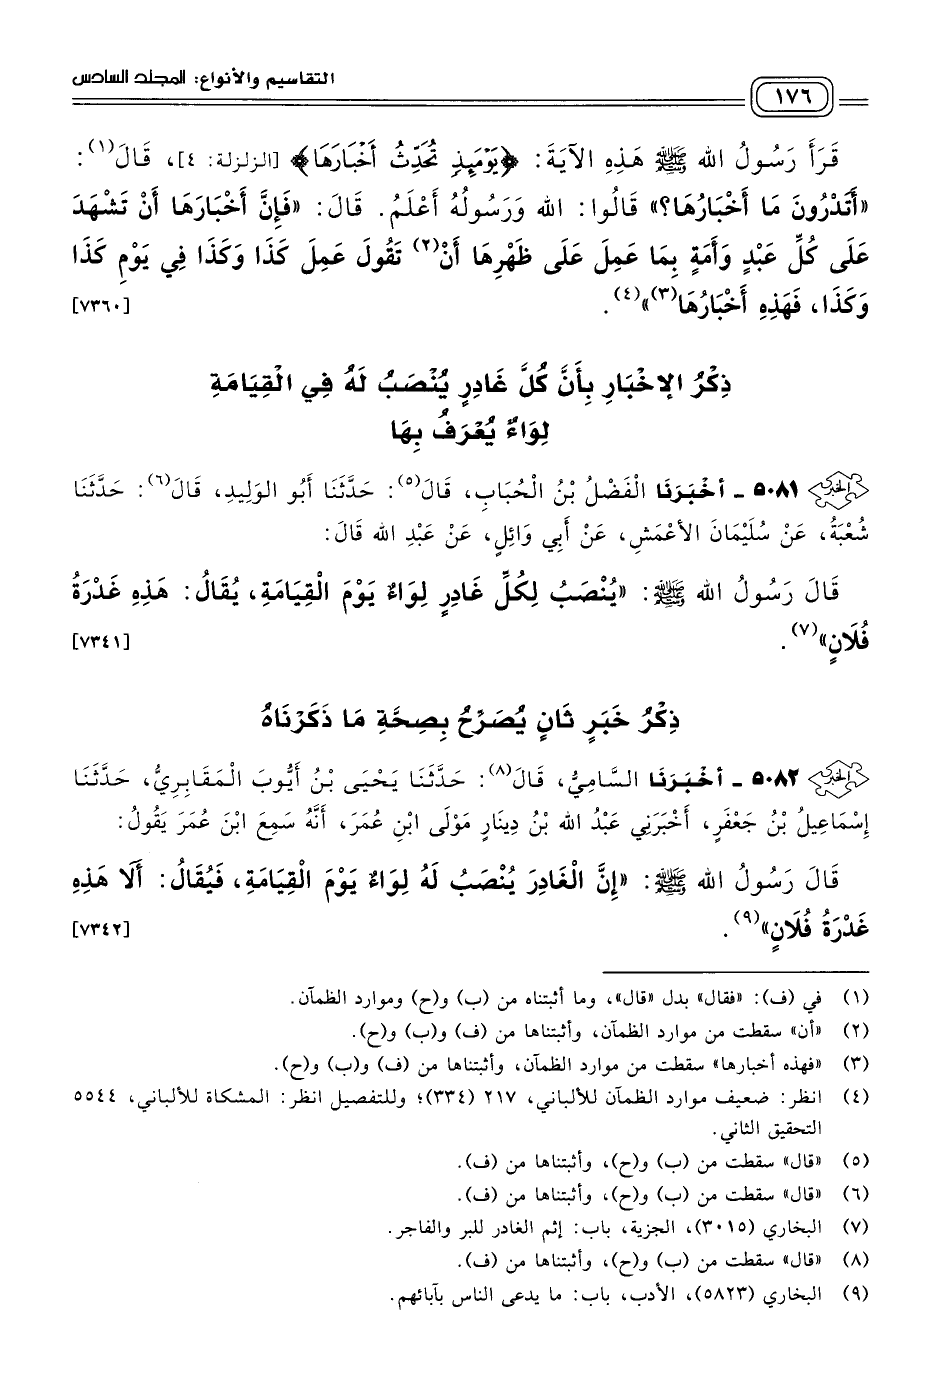 التقاسيم والأنواع: المجلد السادس
١٧٦
قَرَأَ رَسُولُ الله ﷺ هَذِهِ الآيَةَ: ﴿يَوْمَئِذٍ تُحَدِّثُ أَخْبَارَهَا﴾ [الزلزلة: ٤]، قَالَ(١):
«أَتَدْرُونَ مَا أَخْبَارُهَا؟» قَالُوا: الله وَرَسُولُهُ أَعْلَمُ. قَالَ: «فَإِنَّ أَخْبَارَهَا أَنْ تَشْهَدَ
عَلَى كُلِّ عَبْدٍ وَأَمَةٍ بِمَا عَمِلَ عَلَى ظَهْرِهَا أَنْ(٢) تَقُولَ عَمِلَ كَذَا وَكَذَا فِي يَوْمِ كَذَا
وَكَذَا، فَهَذِهِ أَخْبَارُهَا(٣)»(٤). [٧٣٦٠]
ذِكْرُ الإِخْبَارِ بِأَنَّ كُلَّ غَادِرٍ يُنْصَبُ لَهُ فِي الْقِيَامَةِ
لِوَاءٌ يُعْرَفُ بِهَا
٥٠٨١ ـ أَخْبَرَنَا الْفَضْلُ بْنُ الْحُبَابِ، قَالَ(٥): حَدَّثَنَا أَبُو الوَلِيدِ، قَالَ(٦): حَدَّثَنَا
شُعْبَةُ، عَنْ سُلَيْمَانَ الأَعْمَشِ، عَنْ أَبِي وَائِلٍ، عَنْ عَبْدِ الله قَالَ:
قَالَ رَسُولُ الله ﷺ: «يُنْصَبُ لِكُلِّ غَادِرٍ لِوَاءٌ يَوْمَ الْقِيَامَةِ، يُقَالُ: هَذِهِ غَدْرَةُ
فُلَانٍ»(٧). [٧٣٤١]
ذِكْرُ خَبَرٍ ثَانٍ يُصَرِّحُ بِصِحَّةِ مَا ذَكَرْنَاهُ
٥٠٨٢ ـ أَخْبَرَنَا السَّامِيُّ، قَالَ(٨): حَدَّثَنَا يَحْيَى بْنُ أَيُّوبَ الْمَقَابِرِيُّ، حَدَّثَنَا
إِسْمَاعِيلُ بْنُ جَعْفَرٍ، أَخْبَرَنِي عَبْدُ الله بْنُ دِينَارٍ مَوْلَى ابْنِ عُمَرَ، أَنَّهُ سَمِعَ ابْنَ عُمَرَ يَقُولُ:
قَالَ رَسُولُ الله ﷺ: «إِنَّ الْغَادِرَ يُنْصَبُ لَهُ لِوَاءٌ يَوْمَ الْقِيَامَةِ، فَيُقَالُ: أَلَا هَذِهِ
غَدْرَةُ فُلَانٍ»(٩). [٧٣٤٢]
(١) في (ف): «فقال» بدل «قال»، وما أثبتناه من (ب) و(ح) وموارد الظمآن.
(٢) «أن» سقطت من موارد الظمآن، وأثبتناها من (ف) و(ب) و(ح).
(٣) «فهذه أخبارها» سقطت من موارد الظمآن، وأثبتناها من (ف) و(ب) و(ح).
(٤) انظر: ضعيف موارد الظمآن للألباني، ٢١٧ (٣٣٤)؛ وللتفصيل انظر: المشكاة للألباني، ٥٥٤٤
التحقيق الثاني.
(٥) «قال» سقطت من (ب) و(ح)، وأثبتناها من (ف).
(٦) «قال» سقطت من (ب) و(ح)، وأثبتناها من (ف).
(٧) البخاري (٣٠١٥)، الجزية، باب: إثم الغادر للبر والفاجر.
(٨) «قال» سقطت من (ب) و(ح)، وأثبتناها من (ف).
(٩) البخاري (٥٨٢٣)، الأدب، باب: ما يدعى الناس بآبائهم.